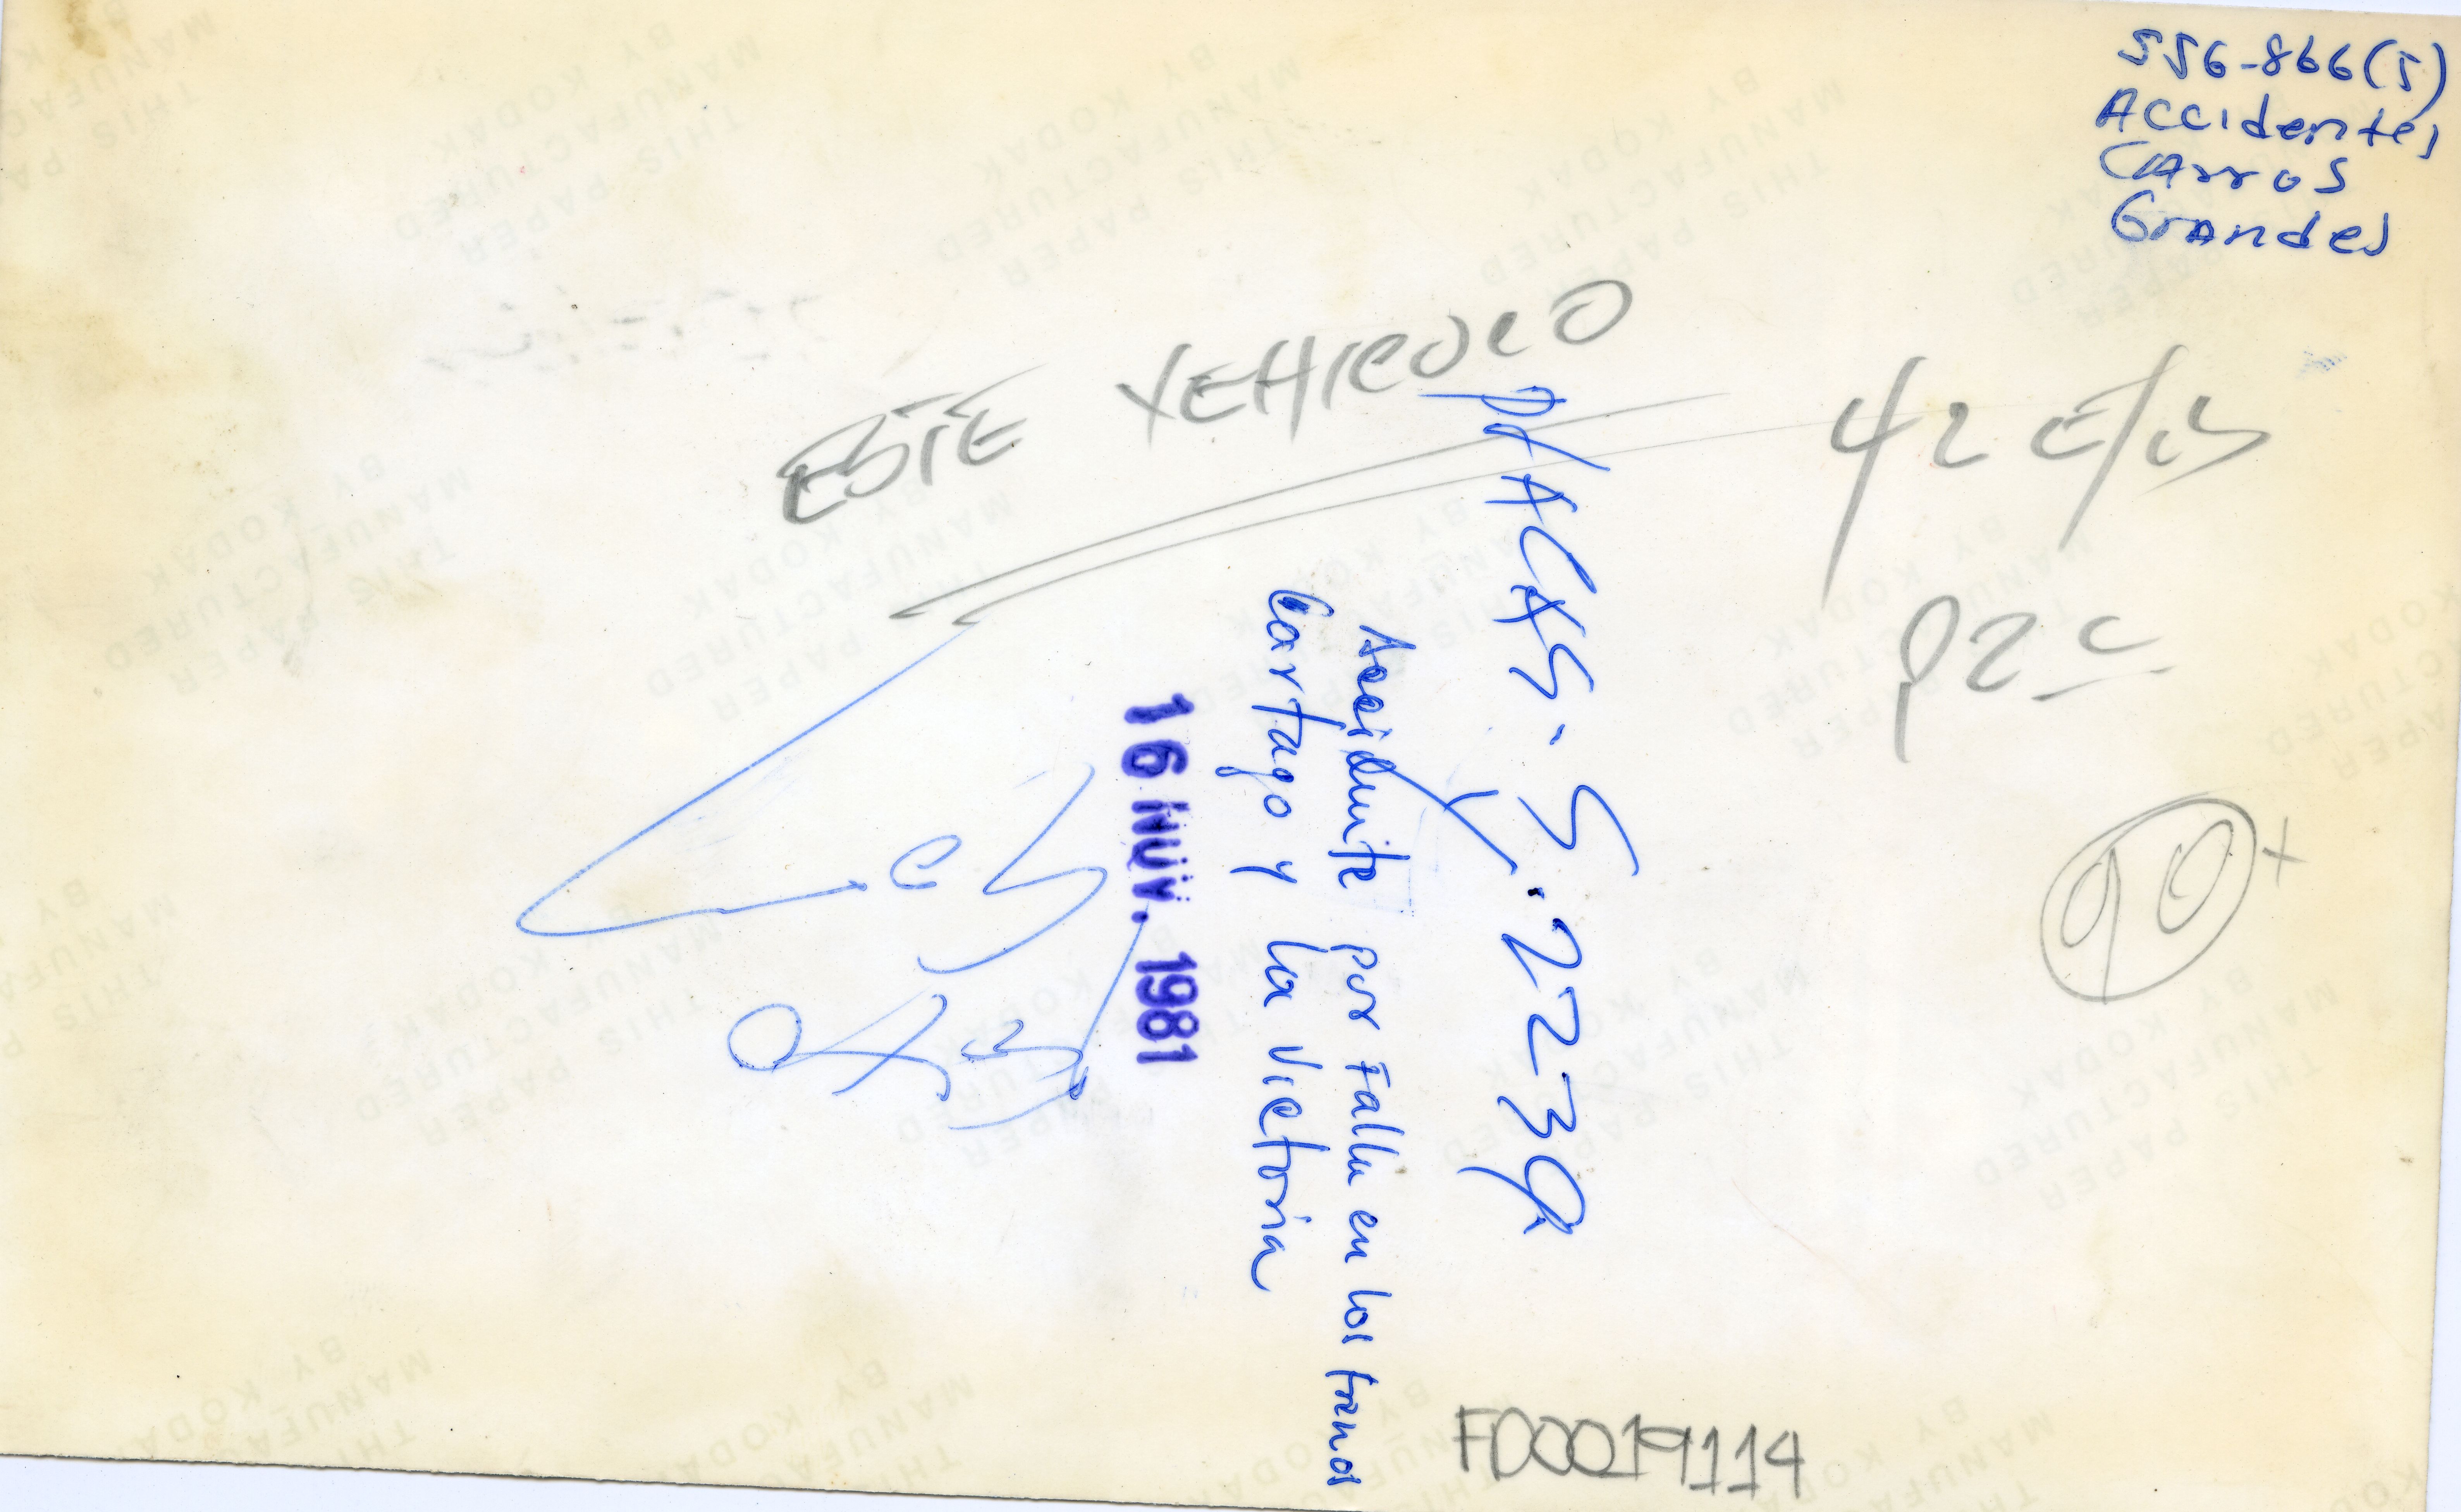 556-866(5)
Accidentes
Carros
Grandes
ESTE VEHICULO
42 c/15
P2c
90
+
placas. S. 2239
Accidente por Falla en los frenos
Cartago y la Victoria
16 NOV. 1981
FD0019114
THIS PAPER
MANUFACTURED
BY KODAK